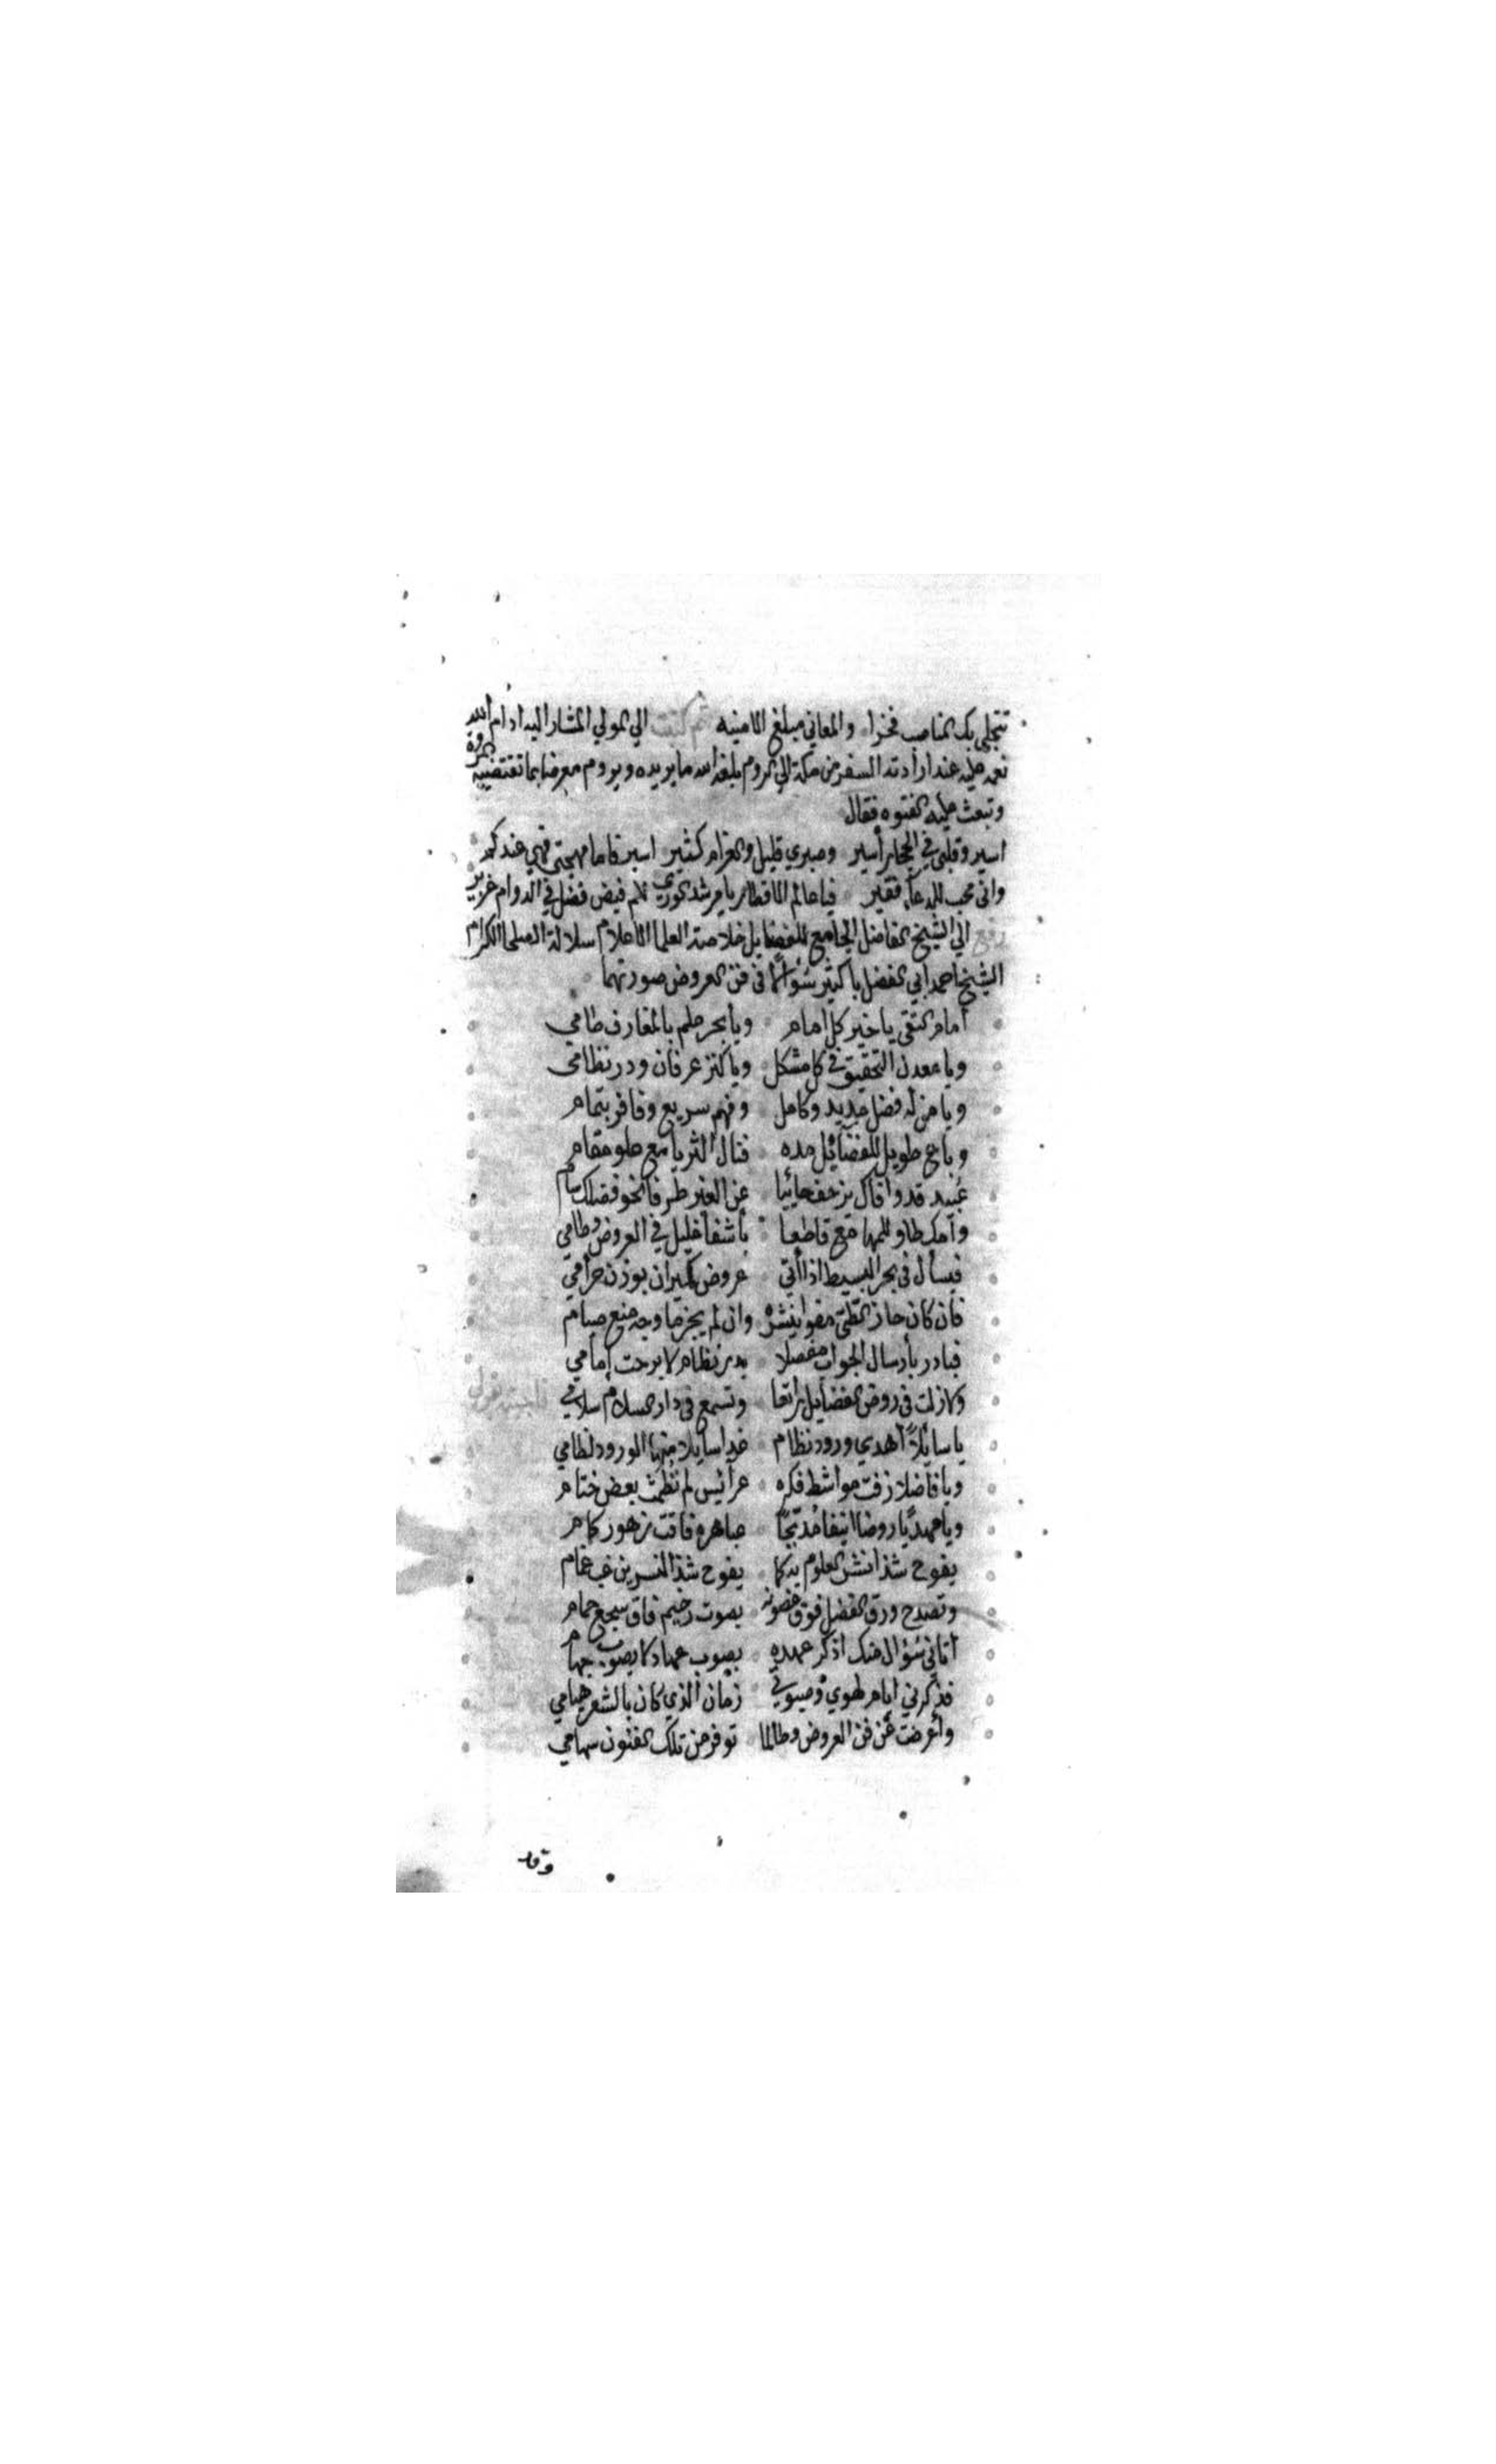 تتجلى بك المناصب فخرا والمعاني مبلغ الامنيه ثم كتبت الي المولي المشار اليه ادام الله
نعمه عليه عند ارادته السفر من مكة الي الروم بلغه الله ما يريده ويروم معرضا بما تقتضيه المروة
وتبعث عليه الفتوه فقال
اسير وقلبي في الحجاز أسير وصبري قليل والغرام كثير اسير فاما مهجتي فهي عندكم
واني محب للدعاء فقير فيا عالم الاقطار يا مرشد الوري لكم فيض فضل في الدوام غزير
رفع الي الشيخ الفاضل الجامع للفضايل خلاصة العلما الاعلام سلالة الصلحا الكرام
الشيخ احمد ابي الفضل باكثير سؤالا في فن العروض صورتهما
أمام التقي يا خير كل امام ويا بحر علم بالمعارف طامي
ويا معدن التحقيق في كل مشكل ويا كنز عرفان ودر نظامي
ويا من له فضل مديد وكامل وفهم سريع وافر بتمام
وباع طويل للفضائل مده فنال الثريا مع علو مقام
عُبيد قد وافاك يزحف حائيا عن الغير طرفا نحو فضلك سام
وأمك طاو للمهامع قاطعا بأشفا خليل في العروض وطامي
فيسأل في بحر البسيط اذا أتي عروض كميران بوزن حرامي
فان كان جاز الطي مفوا ينشر وان لم يجز ما وجه منع صيام
فبادر بأرسال الجواب مفصلا بدر نظام لا برحت إمامي
ولا زلت في روض الفضايل راتعا وتسمع في دار السلام سلامي فاجبته بقولي
يا سايلاً أهدي ورود نظام غدا سايلا منها الورود لظامي
ويا فاضلا زفت مواشط فكره عرائس لم تُطمث بعض ختام
ويا مهديًا روضا انيفا مُدبّجًا جباهره فاقت زهور كمام
يفوح شذا نشر العلوم به كما يفوح شذا النسرين غب غمام
وتصدح ورق الفضل فوق غصونه بصوت رخيم فاق سجع حمام
أتاني سُؤال منك اذكر عهده بصوب عهاد لا بصوب جهام
فذكرني ايام لهوي وصبوتي زمان الذي كان بالشعر هيامي
وأعرضت عن فن العروض وطالما توفر من تلك الفنون سهامي
وقد